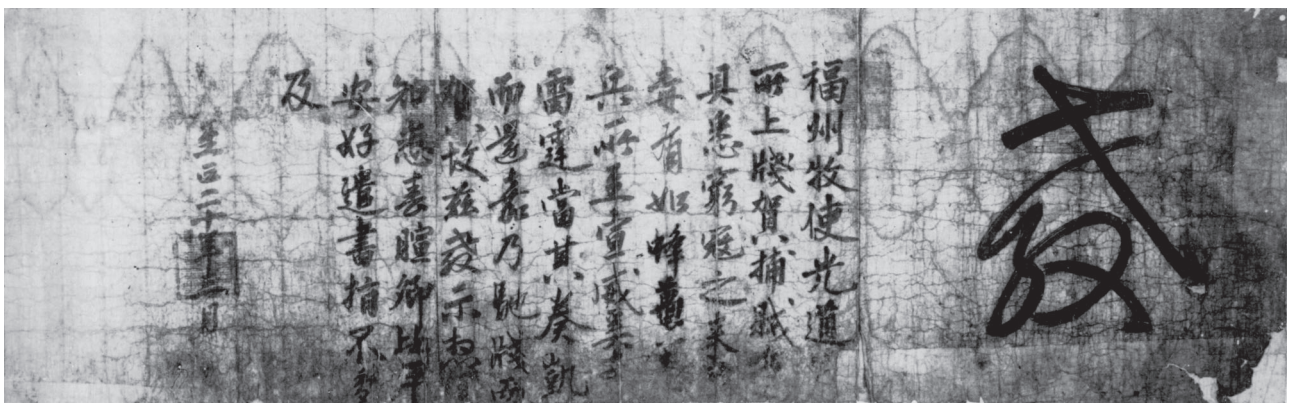 教
福州牧使光道
所上牋賀捕賊事
具悉窮寇之來
有如蜂蠆
兵所至宣威若
雷霆當其奏凱
而還嘉乃馳牋
故茲教示想宜
知悉春暄卿比平
安好遣書指不多
及
至正二十年三月日